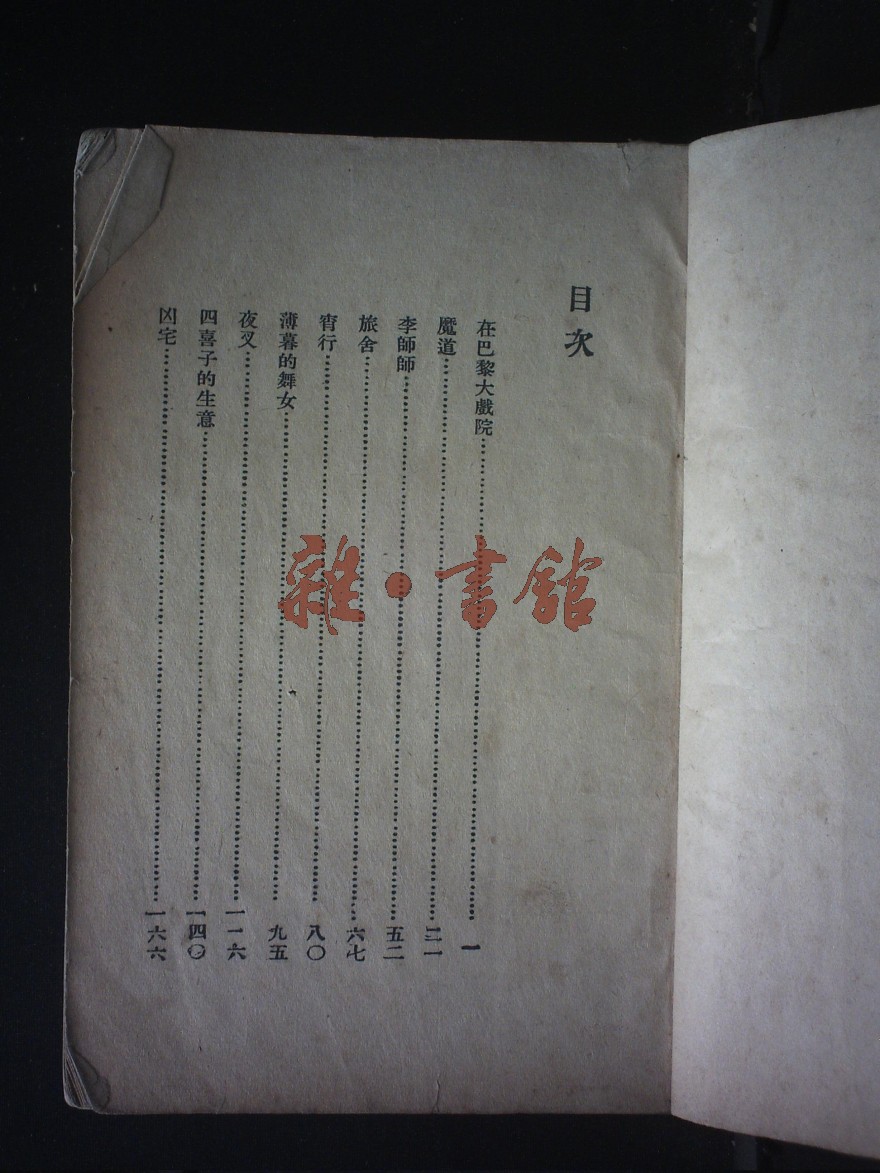 目次
在巴黎大戲院……一
魔道……二一
李師師……五二
旅舍……六七
宵行……八〇
薄暮的舞女……九五
夜叉……一一六
四喜子的生意……一四〇
凶宅……一六六
雜·書館